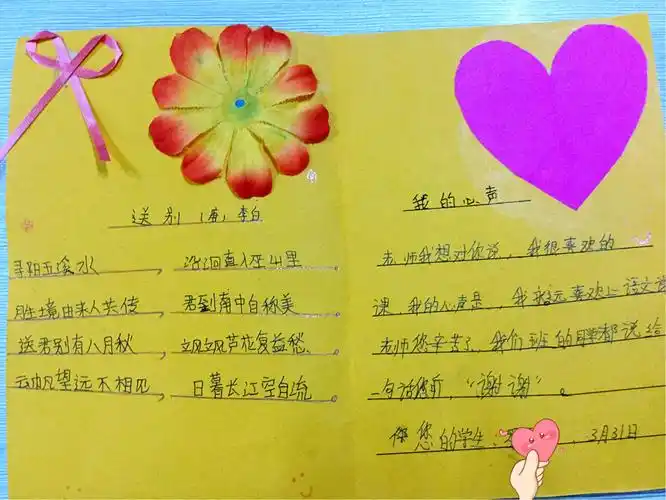 送别 (唐) 李白
寻阳五溪水，沿洄直入巫山里。
胜境由来人共传，君到南中自称美。
送君别有八月秋，飒飒芦花复益愁。
云帆望远不相见，日暮长江空自流。
我的心声
老师我想对你说，我很喜欢的
课，我的心声是，我永远喜欢上语文
老师您辛苦了，我们班的同学都说给
一句话您听，“谢谢”。
您的学生：
3月31日